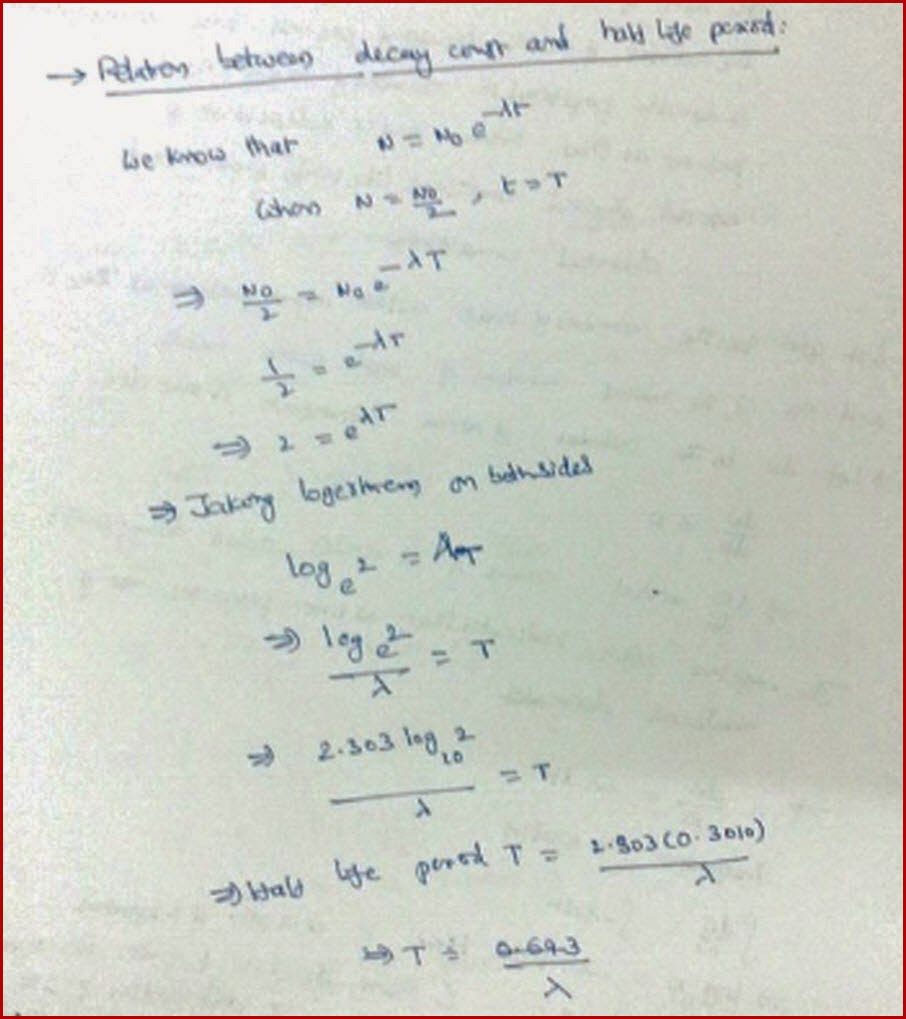 → Relation between decay const and half life period:
We know that N = N₀ e^-λt
when N = N₀/2, t = T
⇒ N₀/2 = N₀ e^-λT
1/2 = e^-λT
⇒ 2 = e^λT
⇒ Taking logerthems on bothsides
log_e 2 = λT
⇒ log_e 2/λ = T
⇒ 2.303 log_10 2/λ = T
⇒ Half life period T = 2.303(0.3010)/λ
⇒ T = 0.693/λ